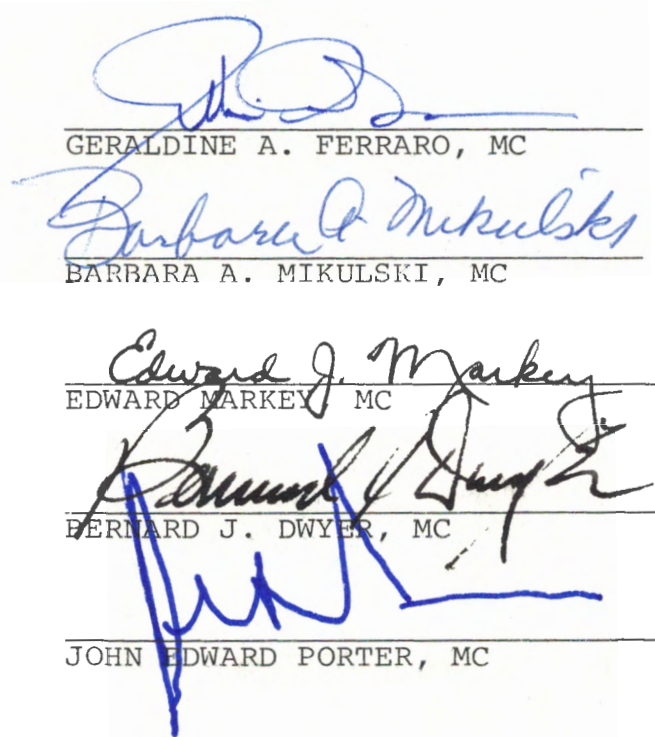 GERALDINE A. FERRARO, MC
Barbara A Mikulski
BARBARA A. MIKULSKI, MC
Edward J. Markey
EDWARD MARKEY, MC
Bernard J Dwyer
BERNARD J. DWYER, MC
JOHN EDWARD PORTER, MC